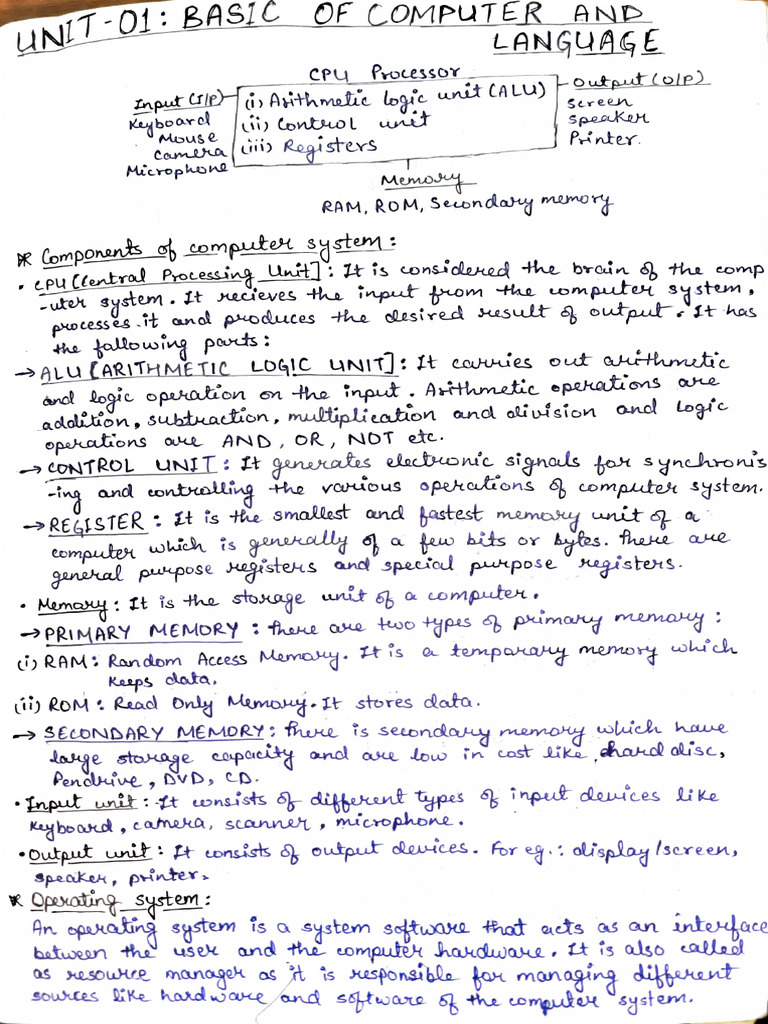 UNIT-01: BASIC OF COMPUTER AND
LANGUAGE
CPU Processor
Input (I/P)
Keyboard
Mouse
Camera
Microphone
(i) Arithmetic logic unit (ALU)
(ii) Control unit
(iii) Registers
Output (O/P)
Screen
Speaker
Printer.
Memory
RAM, ROM, Secondary memory
* Components of computer system:
• CPU [Central Processing Unit]: It is considered the brain of the comp
-uter system. It recieves the input from the computer system,
processes it and produces the desired result of output. It has
the following parts:
→ ALU [ARITHMETIC LOGIC UNIT]: It carries out arithmetic
and logic operation on the input. Arithmetic operations are
addition, subtraction, multiplication and division and logic
operations are AND, OR, NOT etc.
→ CONTROL UNIT: It generates electronic signals for synchronis
-ing and controlling the various operations of computer system.
→ REGISTER: It is the smallest and fastest memory unit of a
computer which is generally of a few bits or bytes. There are
general purpose registers and special purpose registers.
• Memory: It is the storage unit of a computer.
→ PRIMARY MEMORY: There are two types of primary memory:
(i) RAM: Random Access Memory. It is a temporary memory which
keeps data.
(ii) ROM: Read Only Memory. It stores data.
→ SECONDARY MEMORY: There is secondary memory which have
large storage capacity and are low in cost like hard disc,
Pendrive, DVD, CD.
• Input unit: It consists of different types of input devices like
Keyboard, camera, scanner, microphone.
• Output unit: It consists of output devices. For eg.: display/screen,
speaker, printer.
* Operating system:
An operating system is a system software that acts as an interface
between the user and the computer hardware. It is also called
as resource manager as it is responsible for managing different
sources like hardware and software of the computer system.